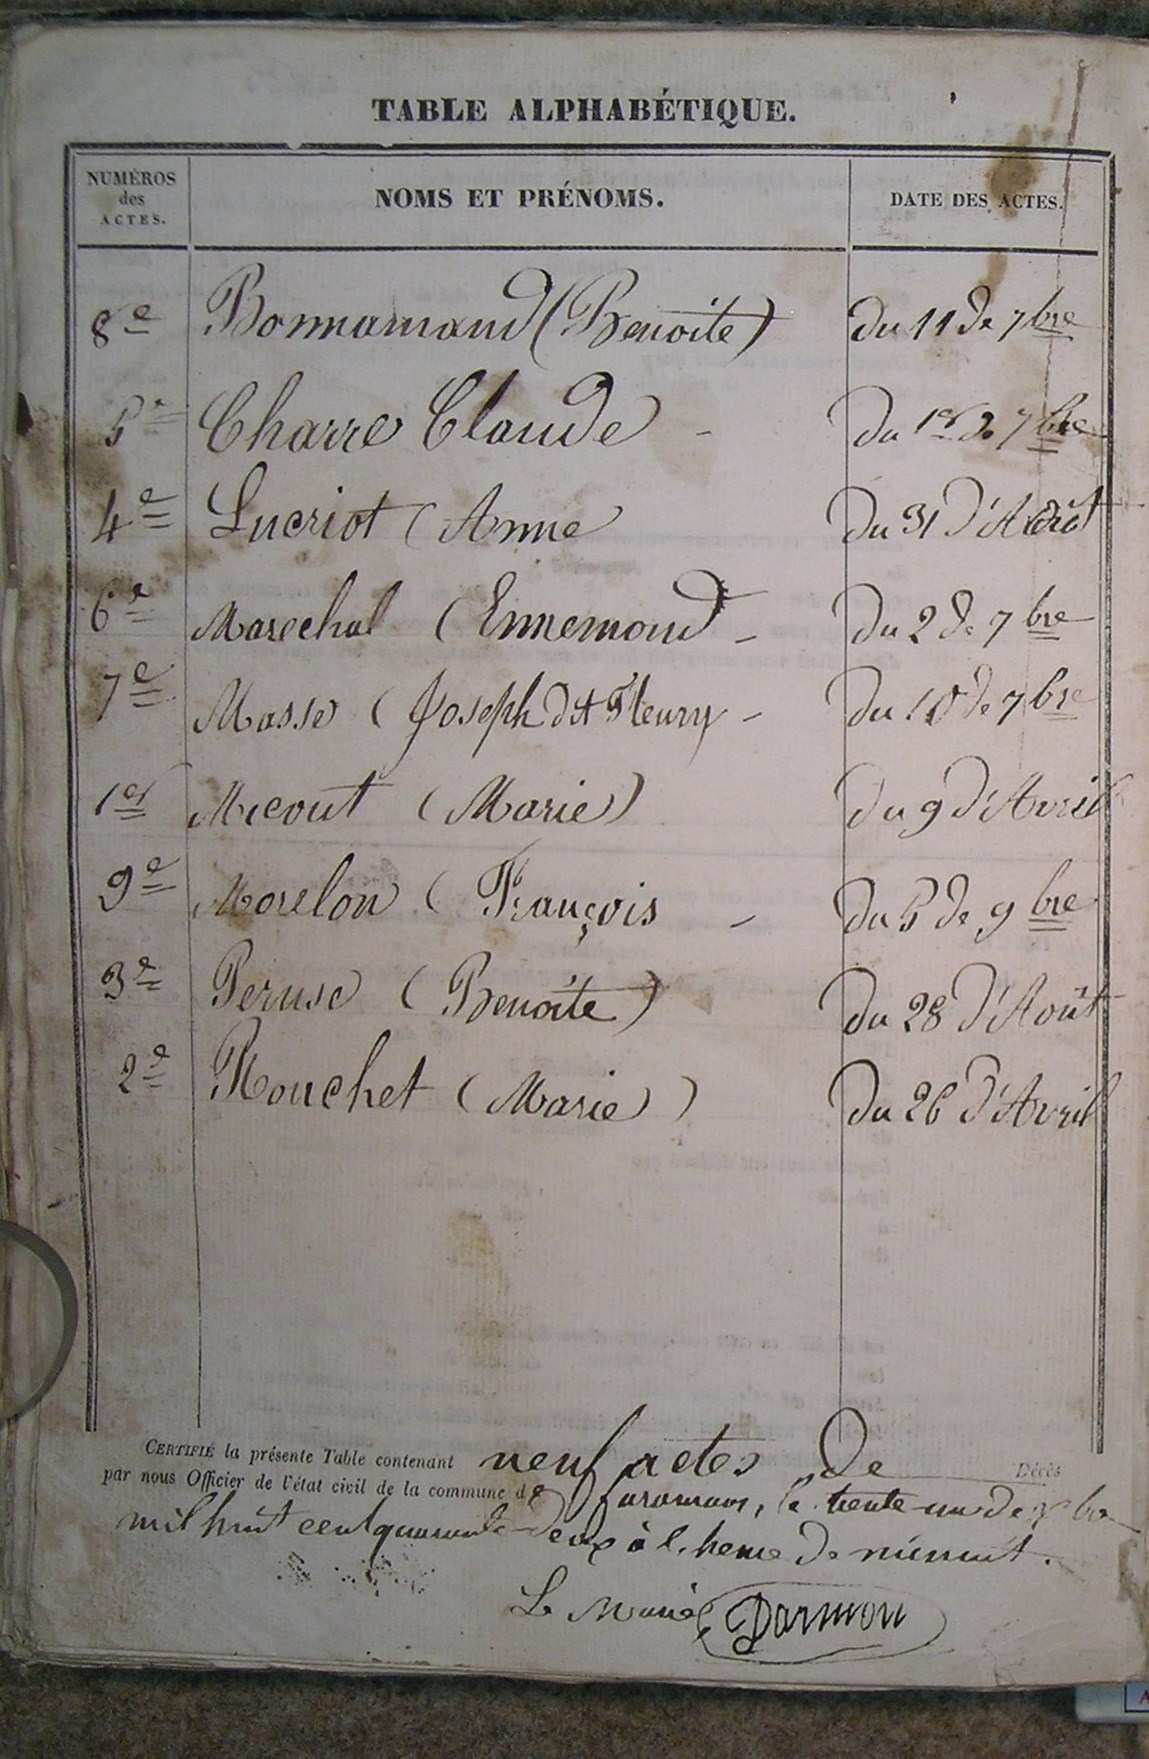 TABLE ALPHABÉTIQUE.
NUMÉROS des ACTES. NOMS ET PRÉNOMS. DATE DES ACTES.
8e Bonnamand (Benoite) du 11 de 7bre
5e Charre Claude - du 1er de 7bre
4e Lucriot (Anne du 31 d'Août
6e Marechal (Ennemond - du 2 de 7bre
7e Masse (Joseph dit Fleury - du 10 de 7bre
1er Micout (Marie) du 9 d'Avril
9e Morelon (François - du 5 de 9bre
3e Peruse (Benoîte) du 28 d'Août
2e Rouchet (Marie) du 26 d'Avril
CERTIFIÉ la présente Table contenant neuf actes de Décès
par nous Officier de l'état civil de la commune de faramans, le trente un de Xbre
mil huit cent quarante deux à l'heure de minuit.
Le Maire Darmon